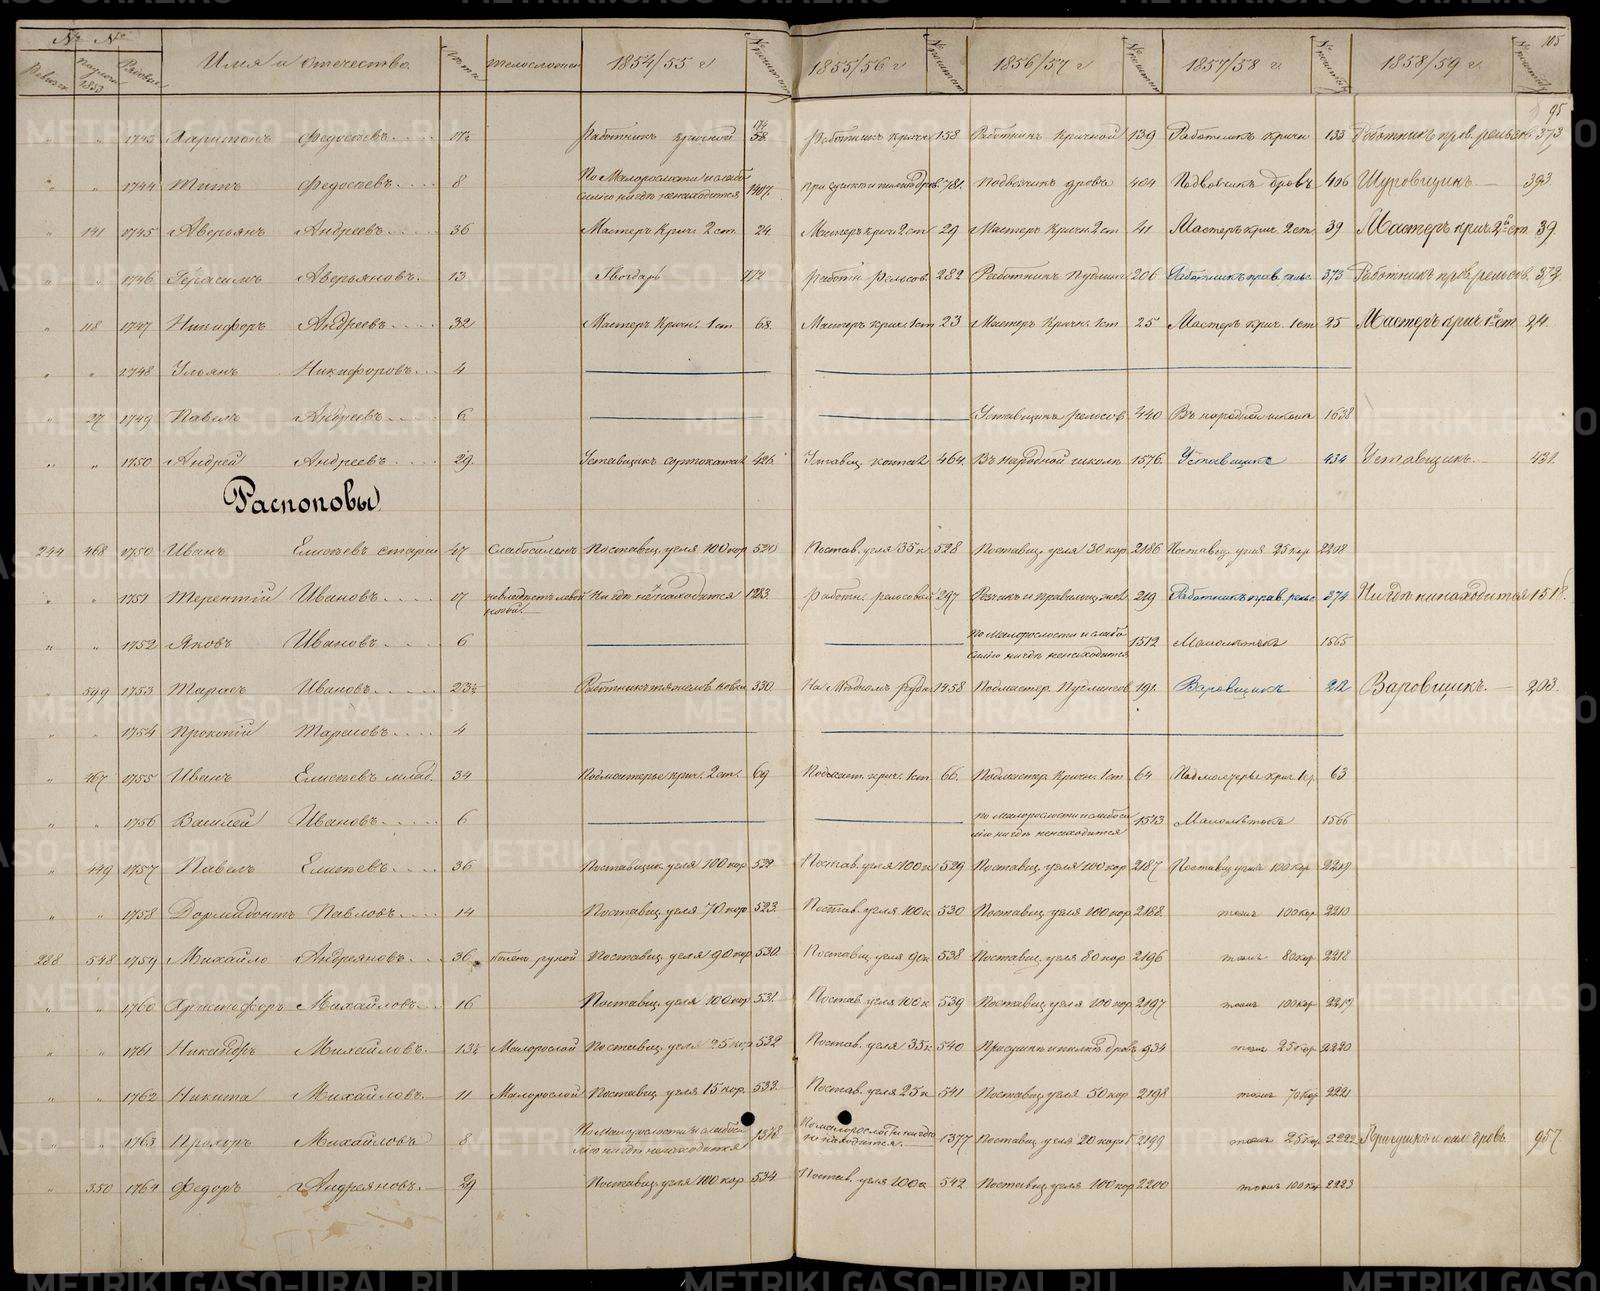 № №
105
Имя и отчество
Лѣта
Телосложен
1854/55 г
1855/56 г
1856/57 г
1857/58 г.
1858/59 г.
95
1743 Харитонъ Федосѣевъ 17½ Работникъ кричной 58 Работникъ кричн 158 Работникъ Кричной 139 Работникъ кричн 133 Работникъ прав. рельсов. 373
1744 Титъ Федосѣевъ 8 По Малорослости и слабо
силію нигдѣ ненаходится 1407 Подвозчикъ дровъ 404 Подвозчикъ дровъ 406 Шуровщикъ 393
141 1745 Аверьянъ Андреевъ 36 Мастеръ Кричн. 2 ст. 24 Мастеръ крич 2 ст 29 Мастеръ Кричн. 2 ст 41 Мастеръ крич. 2 ст. 39 Мастеръ крич 2й ст. 39.
1746 Герасимъ Аверьяновъ 13 Гвоздарь 172 Работн. Рельсов. 282 Работникъ Пудлинг 206 Работникъ прав. рельс. 373 Работникъ прав. рельсов. 373.
118 1747 Никифоръ Андреевъ 32 Мастеръ Кричн. 1 ст. 68 Мастеръ крич. 1 ст 23 Мастеръ Кричн. 1 ст 25 Мастеръ крич. 1 ст. 25 Мастеръ крич 1й ст. 24.
1748 Ульянъ Никифоровъ 4
27 1749 Павелъ Андреевъ 6 Уставщикъ рельсов 440 Въ народной школѣ 1638
1750 Андрей Андреевъ 29 Уставщикъ сортокатал 426 Уставщ. 464 Въ народной школѣ 1576 Уставщикъ 434 Уставщикъ 431.
Распоповы
244 468 1750 Иванъ Елисѣевъ старш 47 Слабосиленъ Поставщ. угля 100 кор 520 Постав. угля 35 к 528 Поставщ. угля 30 кор 2186 Поставщ. угля 25 кор 2208
1751 Терентій Ивановъ 17 невладѣетъ лѣвой
ногой. Нигдѣ не находится 1283 Работн. рельсовый 247 219 Работникъ прав. рельс 374 Нигдѣ ненаходится 1518.
1752 Яковъ Ивановъ 6 По Малорослости и слабо
силію нигдѣ ненаходится 1512 Малолѣтокъ 1565
549 1753 Тарасъ Ивановъ 23½ Работникъ тяжелов. ковки 330 На Мѣдномъ рудн 1458 Подмастер. Пудлингов 191 Варовщикъ 212 Варовщикъ. 203.
1754 Прокопій Тарасовъ 4
467 1755 Иванъ Елисѣевъ млад. 34 Подмастерье крич. 2 ст. 69 Подмаст. крич. 1 ст 66 Подмастер. Кричн. 1 ст 64 Подмастерье крич. 1 ст. 63
1756 Василей Ивановъ 6 по малорослости и слабоси
лію нигдѣ ненаходится 1513 Малолѣтокъ 1566
449 1757 Павелъ Елисѣевъ 36 Поставщик угля 100 кор 522 Постав. угля 100 к 529 Поставщ. угля 100 кор 2187 Поставщ угля 100 кор 2209
1758 Дормидонтъ Павловъ 14 Поставщ. угля 70 кор 523 Постав. угля 100 к 530 Поставщ. угля 100 кор 2188 тоже 100 кор 2210
288 548 1759 Михайло Андреяновъ 36 боленъ рукой Поставщ. угля 90 кор 530 Поставщ. угля 90 к 538 Поставщ. угля 80 кор 2196 тоже 80 кор 2218
1760 Христофоръ Михайловъ 16 Поставщ. угля 100 кор 531 Постав. угля 100 к 539 Поставщ угля 100 кор 2197 тоже 100 кор 2219
1761 Никандръ Михайловъ 13½ Малорослой Поставщ. угля 25 кор 532 Постав. угля 35 к 540 При сушкѣ и пилкѣ дровъ 934 тоже 25 кор 2220
1762 Никита Михайловъ 11 Малорослой Поставщ угля 15 кор. 533 Постав. угля 25 к 541 Поставщ. угля 50 кор 2198 тоже 70 кор 2221
1763 Прохоръ Михайловъ 8 По Малорослости и слабоси
лію нигдѣ ненаходится 1378 По малорослости нигдѣ
не находится. 1377 Поставщ. угля 20 кор 2199 тоже 25 кор. 2222 При сушкѣ и пил. дровъ. 957
350 1764 Федоръ Андреяновъ 29 Поставщ. угля 100 кор 534 Постав. угля 100 к 542 Поставщ угля 100 кор 2200 тоже 100 кор 2223
METRIKI.GASO-URAL.RU